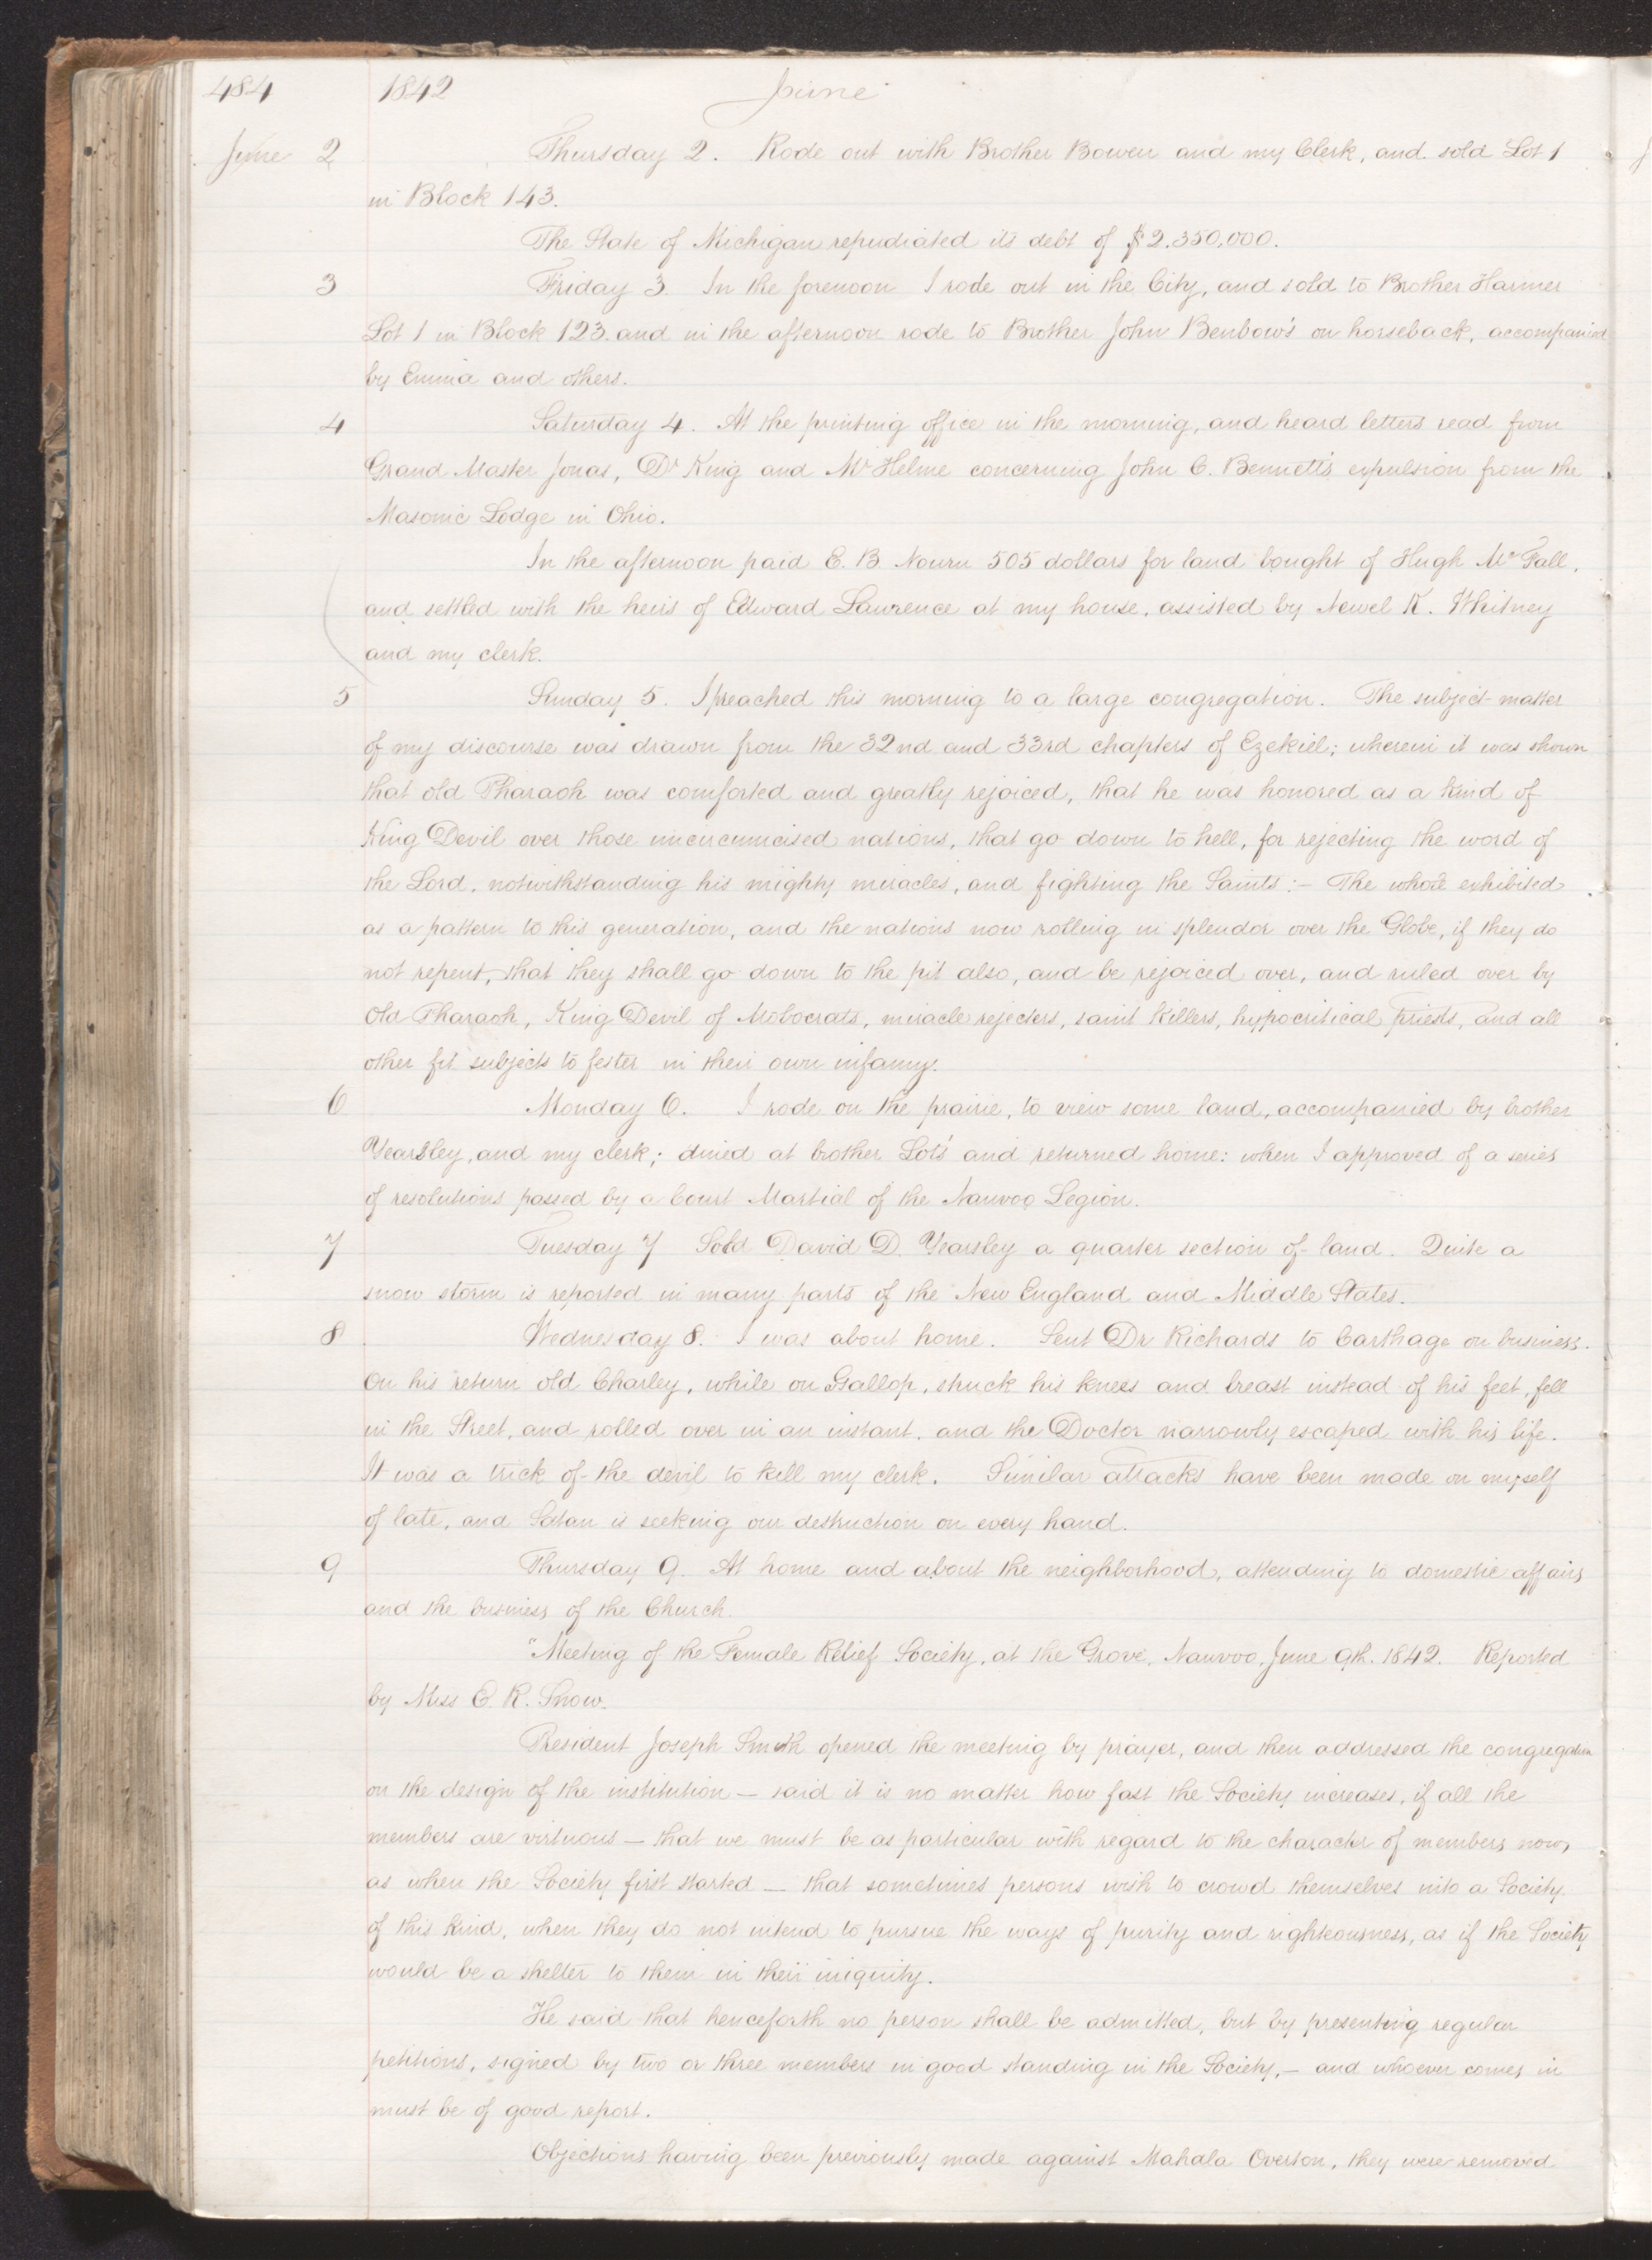 484 1842 June
June 2 Thursday 2. Rode out with Brother Bowen and my Clerk, and sold Lot 1
in Block 143.
The State of Michigan repudiated its debt of $2.350.000.
3 Friday 3. In the forenoon I rode out in the City, and sold to Brother Harmer
Lot 1 in Block 123. and in the afternoon rode to Brother John Benbow's on horseback, accompanied
by Emma and others.
4 Saturday 4. At the printing office in the morning, and heard letters read from
Grand Master Jonas, Dr King and Mr Helme concerning John C. Bennett's expulsion from the
Masonic Lodge in Ohio.
In the afternoon paid E. B. Nourn 505 dollars for land bought of Hugh Mc Fall,
and settled with the heirs of Edward Lawrence at my house, assisted by Newel K. Whitney
and my clerk.
5 Sunday 5. I preached this morning to a large congregation. The subject-matter
of my discourse was drawn from the 32nd and 33rd chapters of Ezekiel; wherein it was shown
that old Pharaoh was comforted and greatly rejoiced, that he was honored as a kind of
King Devil over those uncircumcised nations, that go down to hell, for rejecting the word of
the Lord, notwithstanding his mighty miracles, and fighting the Saints:– The whole exhibited
as a pattern to this generation, and the nations now rolling in splendor over the Globe, if they do
not repent, that they shall go down to the pit also, and be rejoiced over, and ruled over by
Old Pharaoh, King Devil of Mobocrats, miracle rejecters, saint killers, hypocritical priests, and all
other fit subjects to fester in their own infamy.
6 Monday 6. I rode on the prairie, to view some land, accompanied by brother
Yearsley, and my clerk; dined at brother Lot's and returned home: when I approved of a series
of resolutions passed by a Court Martial of the Nauvoo Legion.
7 Tuesday 7 Sold David D. Yearsley a quarter section of land. Quite a
snow storm is reported in many parts of the New England and Middle States.
8 Wednesday 8. I was about home. Sent Dr Richards to Carthage on business.
On his return old Charley, while on Gallop, struck his knees and breast instead of his feet, fell
in the Street, and rolled over in an instant, and the Doctor narrowly escaped with his life.
It was a trick of the devil to kill my clerk. Similar attacks have been made on myself
of late, and Satan is seeking our destruction on every hand.
9 Thursday 9. At home and about the neighborhood, attending to domestic affairs
and the business of the Church.
"Meeting of the Female Relief Society, at the Grove, Nauvoo, June 9th. 1842. Reported
by Miss E. R. Snow.
President Joseph Smith opened the meeting by prayer, and then addressed the congregation
on the design of the institution — said it is no matter how fast the Society increases, if all the
members are virtuous — that we must be as particular with regard to the character of members now,
as when the Society first started — that sometimes persons wish to crowd themselves into a Society
of this kind, when they do not intend to pursue the ways of purity and righteousness, as if the Society
would be a shelter to them in their iniquity.
He said that henceforth no person shall be admitted, but by presenting regular
petitions, signed by two or three members in good standing in the Society,– and whoever comes in
must be of good report.
Objections having been previously made against Mahala Overton, they were removed